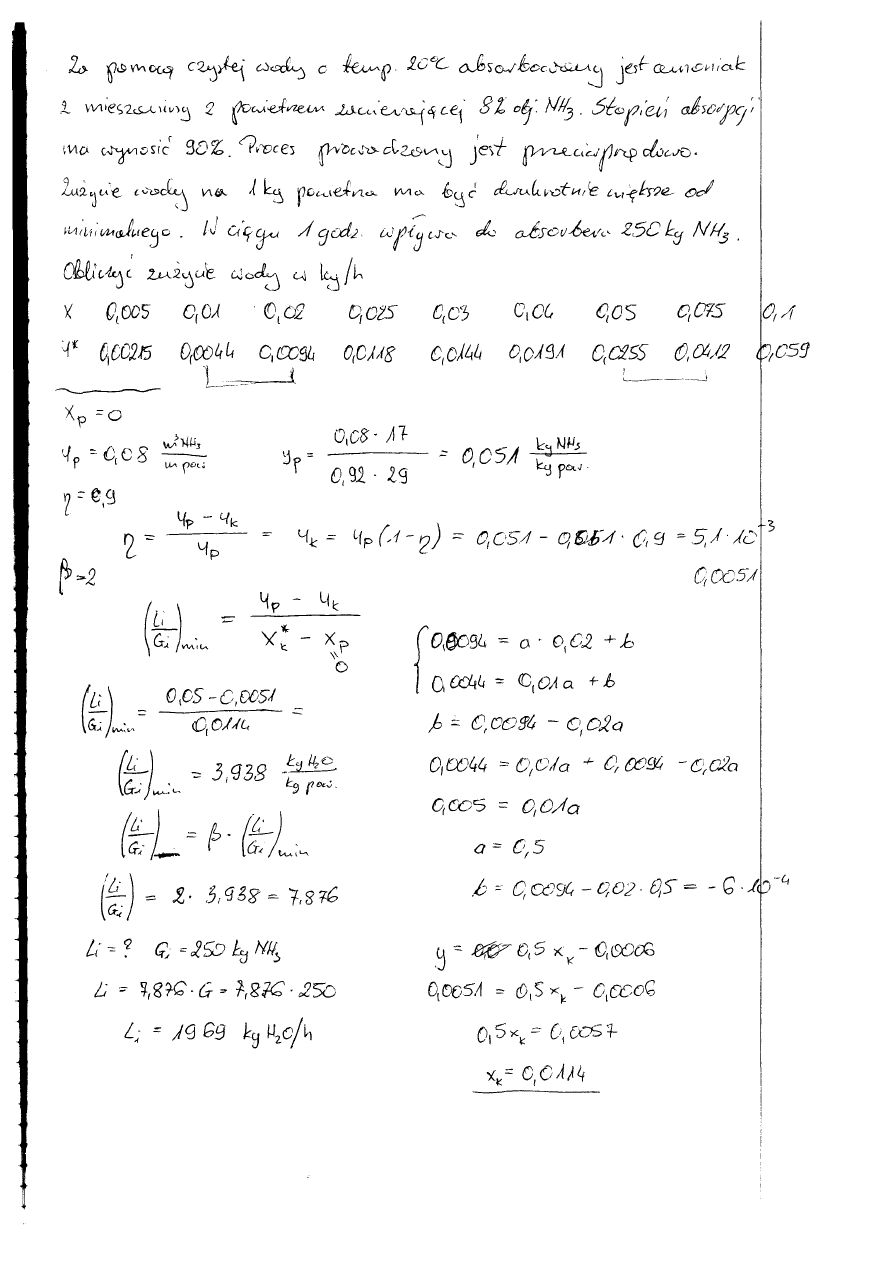 Za pomocą czystej wody o temp. 20°C absorbowany jest amoniak
z mieszaniny z powietrzem zawierającej 8% obj. NH₃. Stopień absorpcji
ma wynosić 90%. Proces prowadzony jest przeciwprądowo.
Zużycie wody na 1kg powietrza ma być dwukrotnie większe od
minimalnego. W ciągu 1 godz. wpływa do absorbera 250 kg NH₃.
Obliczyć zużycie wody w kg/h
X 0,005 0,01 0,02 0,025 0,03 0,04 0,05 0,075 0,1
Y* 0,00215 0,0044 0,0094 0,0118 0,0144 0,0191 0,0255 0,0412 0,059
Xp = 0
Yp = 0,08 m³NH₃/m pow. yp = (0,08 · 17)/(0,92 · 29) = 0,051 kg NH₃/kg pow.
η = 0,9
η = (Yp − Yk)/Yp = Yk = Yp(1−η) = 0,051 − 0,051 · 0,9 = 5,1 · 10⁻³
β = 2 0,0051
(Li/Gi)min = (Yp − Yk)/(Xk* − Xp) = 0
(Li/Gi)min = (0,05 − 0,0051)/0,0114 =
(Li/Gi)min = 3,938 kg H₂O/kg pow.
(Li/Gi) = β · (Li/Gi)min
(Li/Gi) = 2 · 3,938 = 7,876
Li = ? Gi = 250 kg NH₃
Li = 7,876 · G = 7,876 · 250
Li = 1969 kg H₂O/h
0,0094 = a · 0,02 + b
0,0044 = 0,01a + b
b = 0,0094 − 0,02a
0,0044 = 0,01a + 0,0094 − 0,02a
0,005 = 0,01a
a = 0,5
b = 0,0094 − 0,02 · 0,5 = − 6 · 10⁻⁴
y = 0,5 xk − 0,0006
0,0051 = 0,5 xk − 0,0006
0,5xk = 0,0057
xk = 0,0114